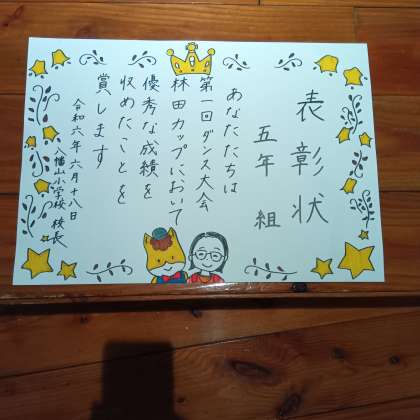 表彰状
五年 組
あなたたちは
第一回ダンス大会
林田カップにおいて
優秀な成績を
収めたことを
賞します
令和六年六月十八日
八幡山小学校 校長